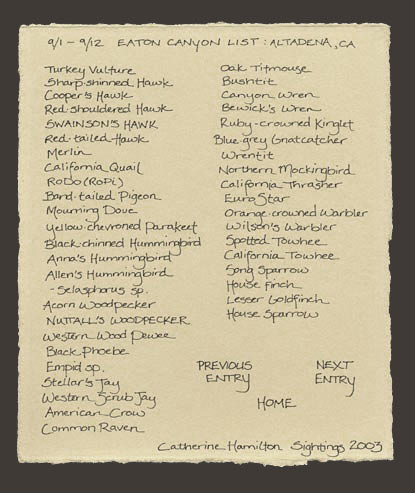 9/1 - 9/12 EATON CANYON LIST : ALTADENA, CA
Turkey Vulture
Sharp-shinned Hawk
Cooper's Hawk
Red-shouldered Hawk
SWAINSON'S HAWK
Red-tailed Hawk
Merlin
California Quail
RoDo (RoPi)
Band-tailed Pigeon
Mourning Dove
Yellow-chevroned Parakeet
Black-chinned Hummingbird
Anna's Hummingbird
Allen's Hummingbird
- Selasphorus sp.
Acorn Woodpecker
NUTTALL'S WOODPECKER
Western Wood Pewee
Black Phoebe
Empid sp.
Stellar's Jay
Western Scrub Jay
American Crow
Common Raven
Oak Titmouse
Bushtit
Canyon Wren
Bewick's Wren
Ruby-crowned Kinglet
Blue-grey Gnatcatcher
Wrentit
Northern Mockingbird
California Thrasher
EuroStar
Orange-crowned Warbler
Wilson's Warbler
Spotted Towhee
California Towhee
Song Sparrow
House Finch
Lesser Goldfinch
House Sparrow
PREVIOUS
ENTRY
NEXT
ENTRY
HOME
Catherine Hamilton Sightings 2003